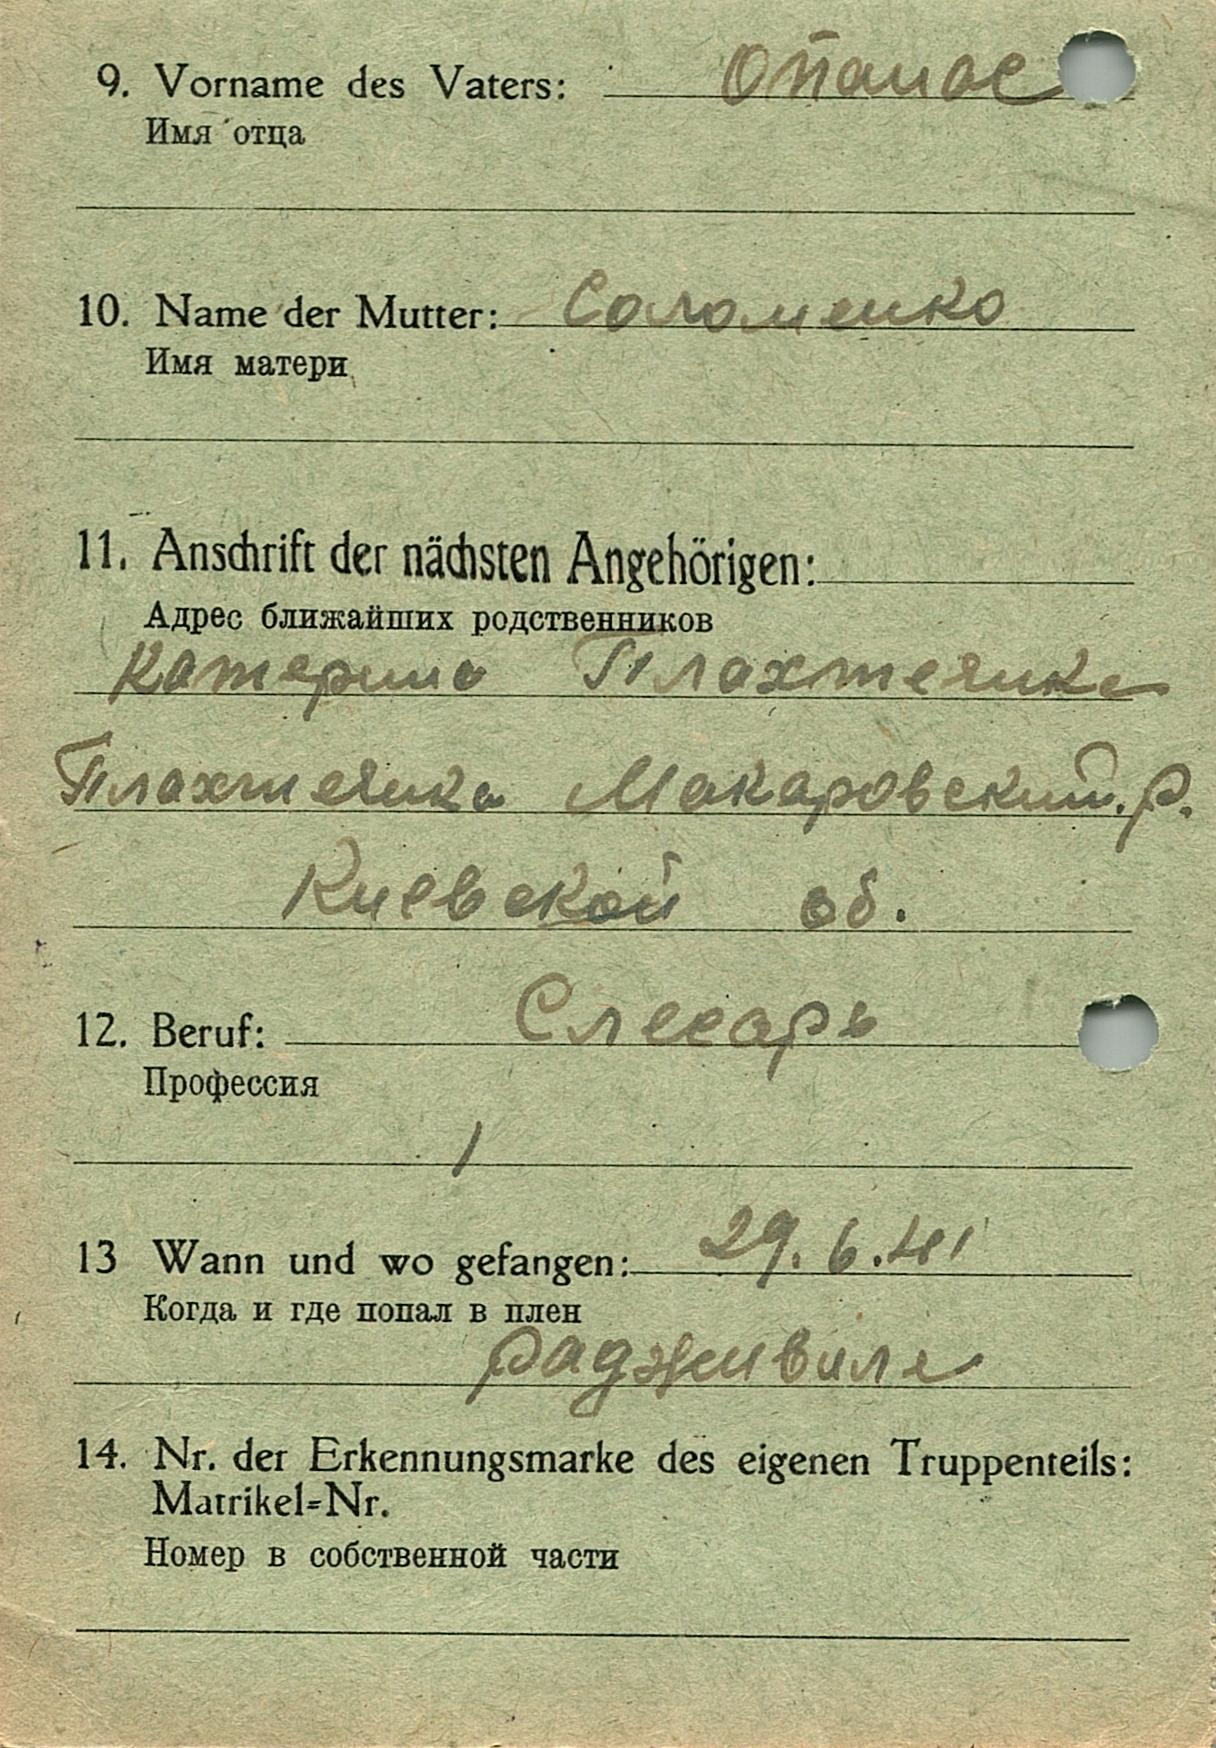 9. Vorname des Vaters: Опанас
Имя отца
10. Name der Mutter: Соломенко
Имя матери
11. Anschrift der nächsten Angehörigen:
Адрес ближайших родственников
Катерина Плахтеянка
Плахтеянка Макаровский.р.
Киевской об.
12. Beruf: Слесарь
Профессия
13 Wann und wo gefangen: 29.6.41
Когда и где попал в плен
Радживиле
14. Nr. der Erkennungsmarke des eigenen Truppenteils:
Matrikel=Nr.
Номер в собственной части